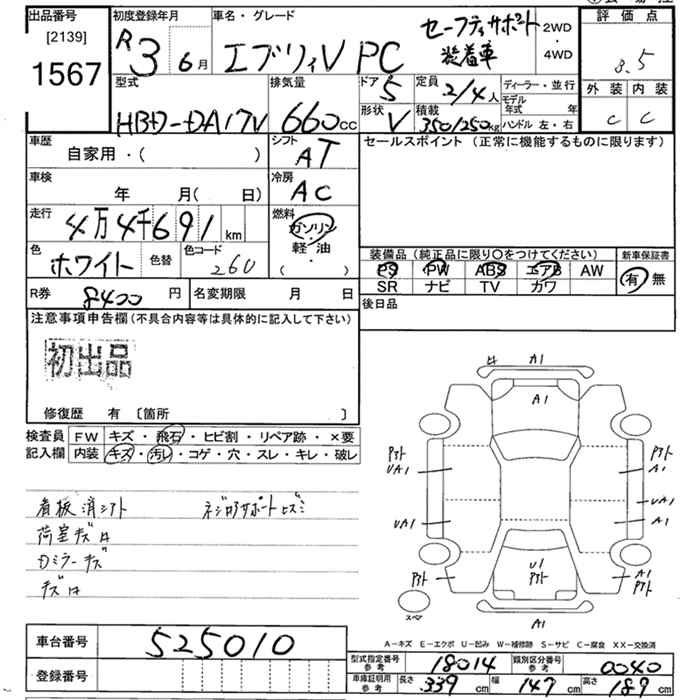 出品番号 初度登録年月 車名・グレード 評価点
[2139]
1567
R3年 6月 エブリイV PC セーフティサポート装着車 2WD・4WD 3.5
型式 排気量 ドア 5 定員 2/4人 ディーラー・並行 外装 内装
HBD-DA17V 660cc 形状 V 積載 350/250kg モデル年式 年 ハンドル 左・右 C C
車歴 自家用・( ) シフト AT セールスポイント (正常に機能するものに限ります)
車検 年 月( 日) 冷房 AC
走行 4万4千691km 燃料 ガソリン・軽油・( )
色 ホワイト 色替 色コード 26U
装備品 (純正品に限り○をつけてください) 新車保証書
PS PW ABS エアB AW 有・無
SR ナビ TV カワ
R券 8400円 名変期限 月 日 後日品
注意事項申告欄 (不具合内容等は具体的に記入して下さい)
初出品
修復歴 有 〔箇所 〕
検査員記入欄 FW キズ・飛石・ヒビ割・リペア跡・×要
内装 キズ・汚レ・コゲ・穴・スレ・キレ・破レ
A1
A1
UA1 A1
UA1 UA1
A1
U1
A1
A1
スペア
看板消シアト
荷室キズ
ミラーキズ
車台番号 525010
登録番号
A-キズ E-エクボ U-凹み W-補修跡 S-サビ C-腐食 XX-交換済
型式指定番号 参考 18014 類別区分番号 参考 0040
車庫証明用 参考 長さ 339cm 幅 147cm 高さ 189cm